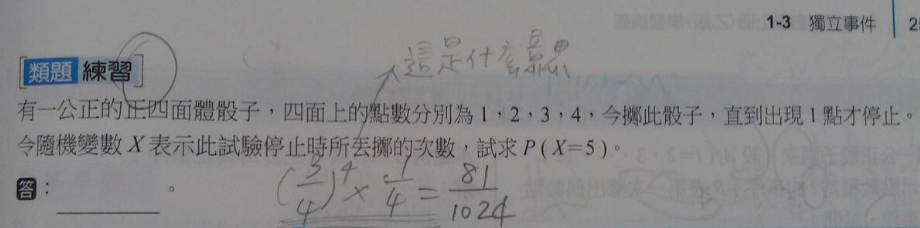 1-3 獨立事件 2
這是什麼意思
類題 練習
有一公正的正四面體骰子，四面上的點數分別為 1，2，3，4，今擲此骰子，直到出現 1 點才停止。
令隨機變數 X 表示此試驗停止時所丟擲的次數，試求 P ( X=5 )。
答：________。
(3/4)^4 × 1/4 = 81/1024